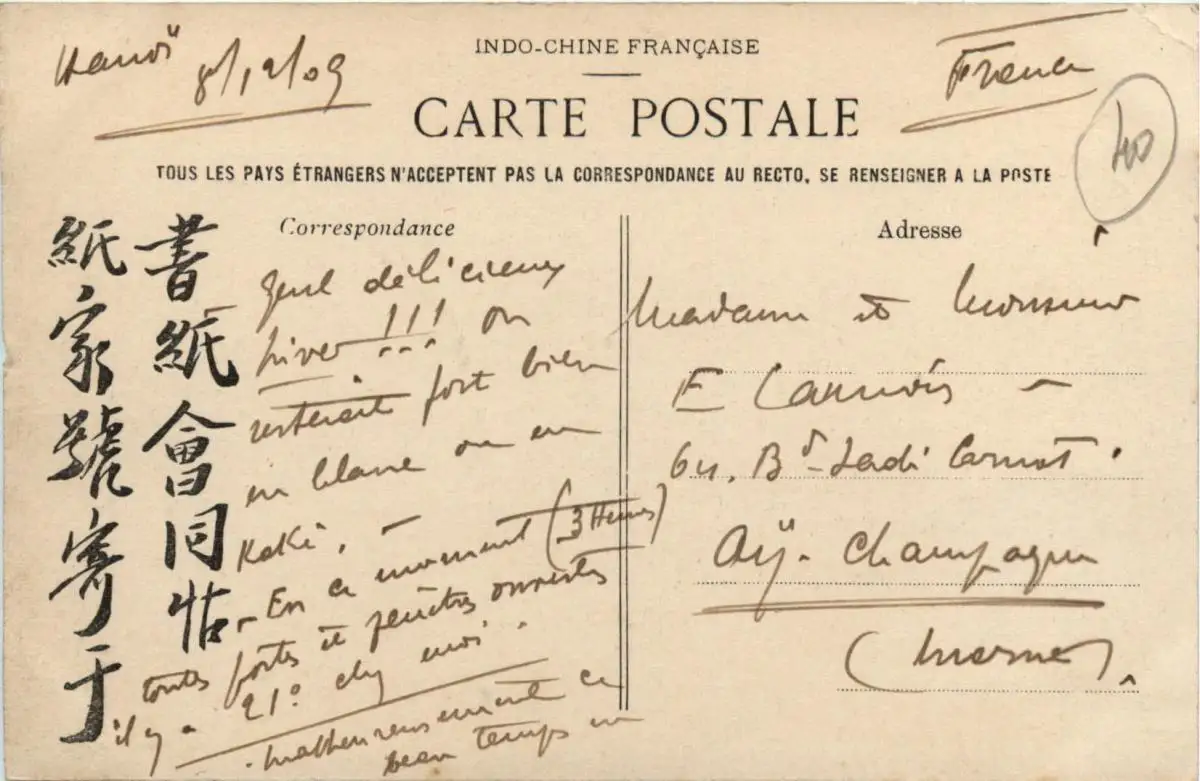 Hanoï 8/12/09
INDO-CHINE FRANÇAISE
CARTE POSTALE
France
40
TOUS LES PAYS ÉTRANGERS N'ACCEPTENT PAS LA CORRESPONDANCE AU RECTO, SE RENSEIGNER A LA POSTE
Correspondance
書紙會同
紙家號寄于
Quel délicieux
hiver !!! on
resterait fort bien
en blanc ou en
Kaki. —
- En ce moment (3 Heures)
toutes portes et fenêtres ouvertes
il y a 21° chez moi.
Malheureusement ce
beau temps
Adresse
Madame et Monsieur
E
64, Bd Sadi Carnot.
Aÿ-Champagne
(Marne).